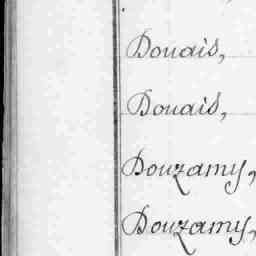 Douais,
Douais,
Douzamy,
Douzamy,